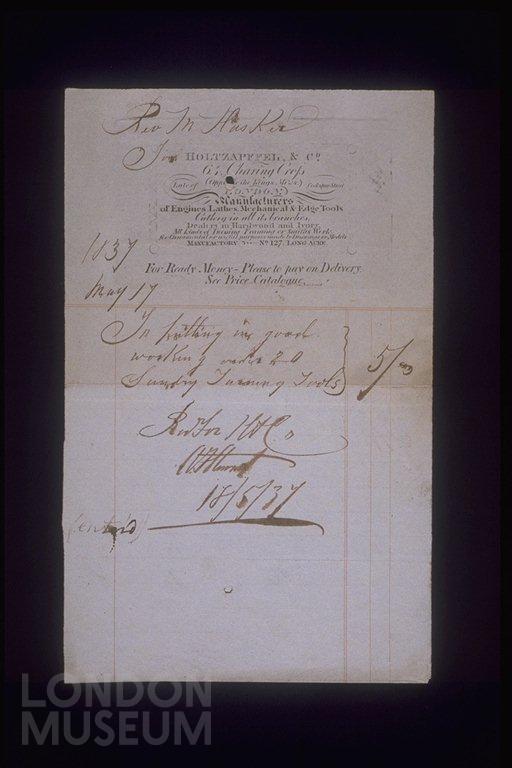 Rev Mr Hasker
To
HOLTZAPFFEL, & Co.
64, Charing Cross
Late of (Opposite the Kings Mews) Cockspur Street
LONDON
Manufacturers
of Engines, Lathes, Mechanical & Edge Tools
Cutlery in all its branches,
Dealers in Hardwood and Ivory,
All kinds of Turning Framing or Smiths Work,
MANUFACTORY No. 127, LONG ACRE
1837
For Ready Money - Please to pay on Delivery
See Price Catalogue
May 17
To putting in good
working order 20
Sundry Turning Tools
5/
Recd for H & Co
18/5/37
(entrd)
LONDON
MUSEUM